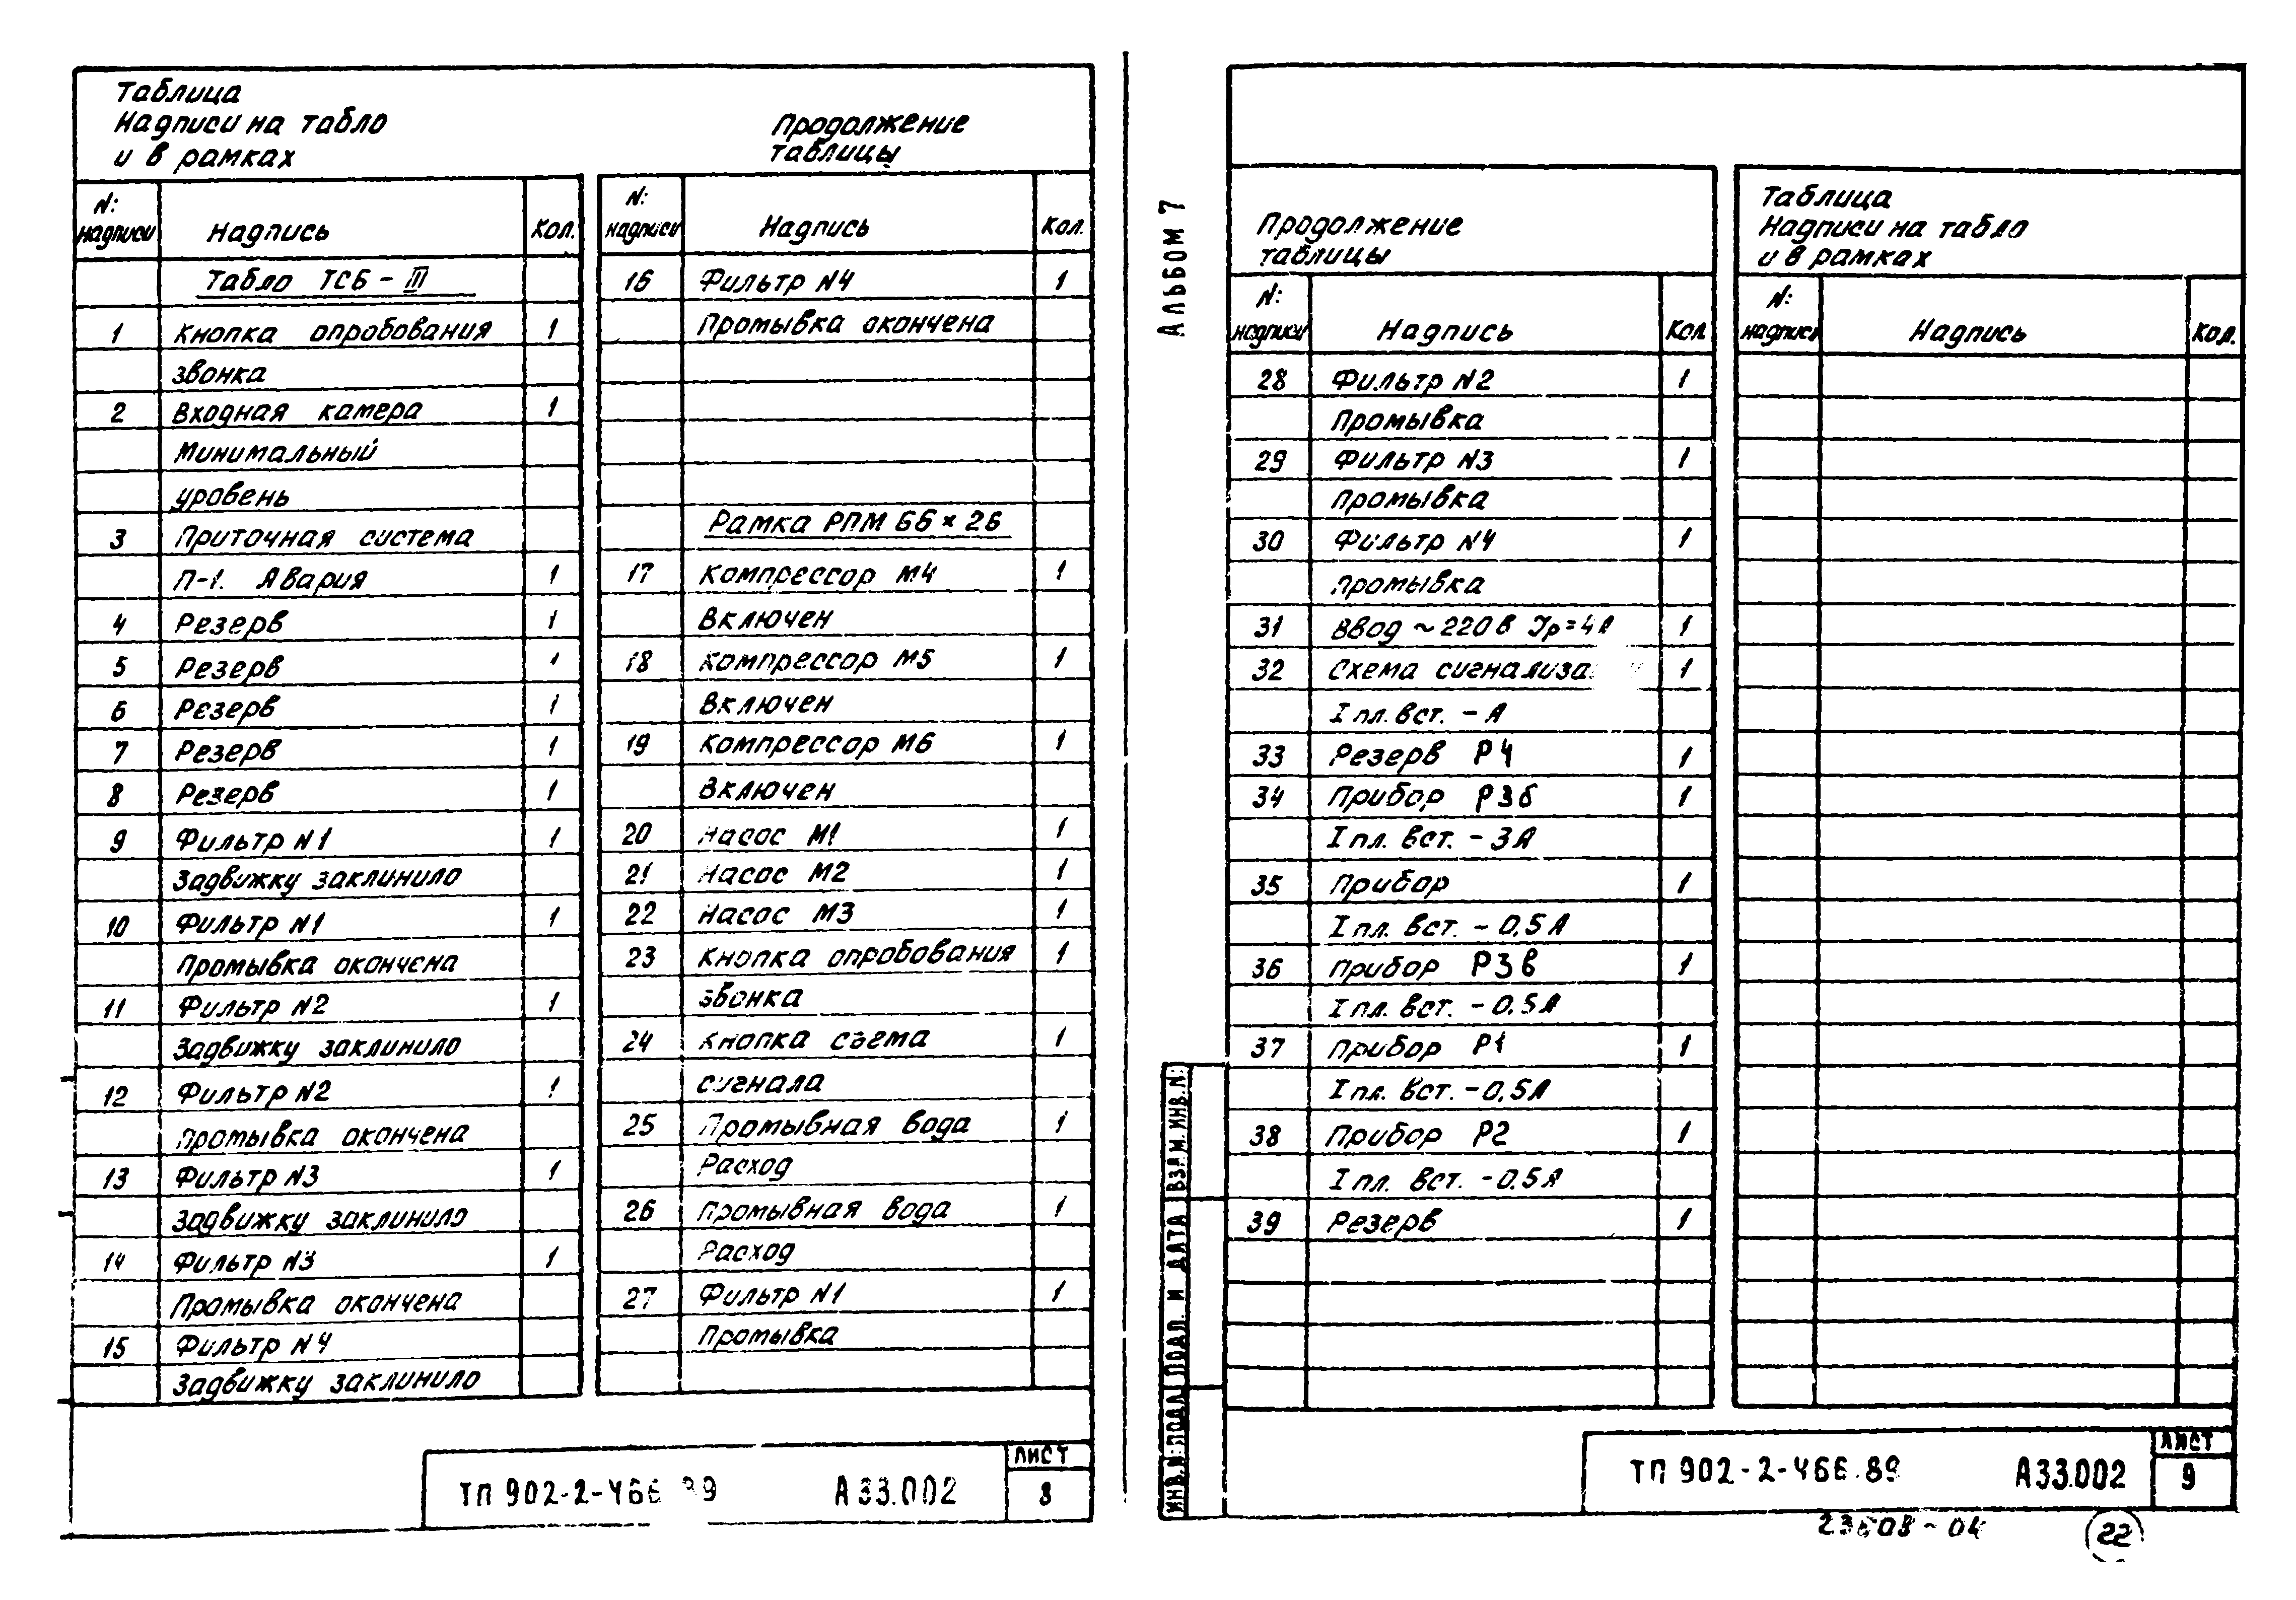 Таблица
Надписи на табло
и в рамках
N: надписи Надпись Кол.
Табло ТСБ-III
1 Кнопка опробования 1
звонка
2 Входная камера 1
Минимальный
уровень
3 Приточная система
П-1. Авария 1
4 Резерв 1
5 Резерв 1
6 Резерв 1
7 Резерв 1
8 Резерв 1
9 Фильтр N1 1
Задвижку заклинило
10 Фильтр N1 1
Промывка окончена
11 Фильтр N2 1
Задвижку заклинило
12 Фильтр N2 1
Промывка окончена
13 Фильтр N3 1
Задвижку заклинило
14 Фильтр N3 1
Промывка окончена
15 Фильтр N4
Задвижку заклинило
Продолжение
таблицы
N: надписи Надпись Кол.
16 Фильтр N4 1
Промывка окончена
Рамка РПМ 66×26
17 Компрессор М4 1
Включен
18 Компрессор М5 1
Включен
19 Компрессор М6 1
Включен
20 Насос М1 1
21 Насос М2 1
22 Насос М3 1
23 Кнопка опробования 1
звонка
24 Кнопка съема 1
сигнала
25 Промывная вода 1
Расход
26 Промывная вода 1
Расход
27 Фильтр N1 1
Промывка
ТП 902-2-466.89 А33.002
ЛИСТ
8
АЛЬБОМ 7
Продолжение
таблицы
N: надписи Надпись Кол
28 Фильтр N2 1
Промывка
29 Фильтр N3 1
Промывка
30 Фильтр N4 1
Промывка
31 Ввод ~220в Jр=4А 1
32 Схема 1
I пл. вст. - А
33 Резерв Р4 1
34 Прибор Р3б 1
I пл. вст. - 3А
35 Прибор 1
I пл. вст. - 0.5А
36 Прибор Р3в 1
I пл. вст. - 0.5А
37 Прибор Р1 1
I пл. вст. - 0,5А
38 Прибор Р2 1
I пл. вст. - 0.5А
39 Резерв 1
Таблица
Надписи на табло
и в рамках
N: надписи Надпись Кол.
ВЗАМ. ИНВ. N:
ПОДП. И ДАТА
ИНВ. N: ПОДЛ
ТП 902-2-466.89 А33.002
ЛИСТ
9
23608-04
22